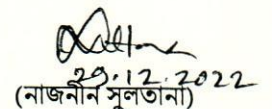 29.12.2022
(নাজনীন সুলতানা)